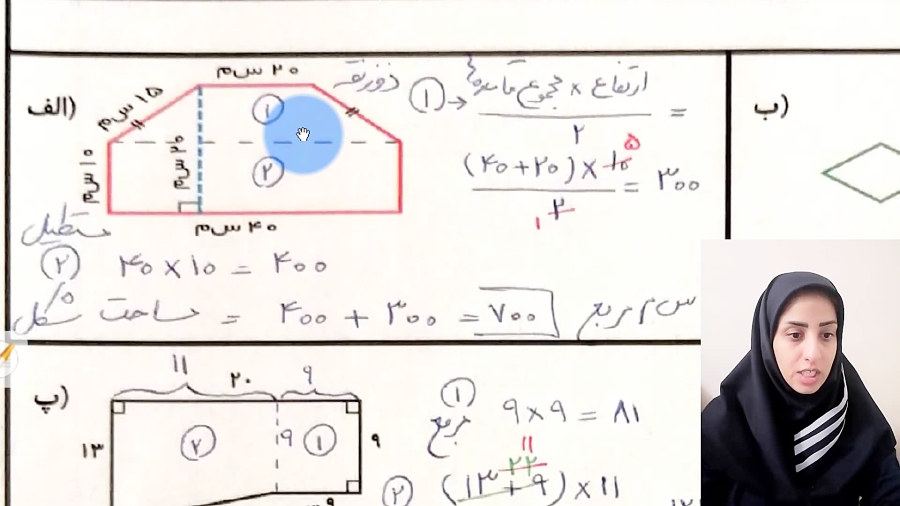 الف)
۲۰ س م
۱۵ س م
۱۰ س م
۲۰ س م
۴۰ س م
۱
۲
ذوزنقه
۱ → ارتفاع × مجموع قاعده‌ها / ۲ =
(۴۰+۲۰) × ۱۰ / ۲ = ۳۰۰
۵
۱
مستطیل
۲ ۴۰ × ۱۰ = ۴۰۰
مساحت شکل = ۴۰۰ + ۳۰۰ = ۷۰۰ س م مربع
ب)
پ)
۱۱
۲۰
۹
۱۳
۲
۹
۱
۹
۱ مربع ۹ × ۹ = ۸۱
۱۱
۲۲
۲ (۱۳ + ۹) × ۱۱